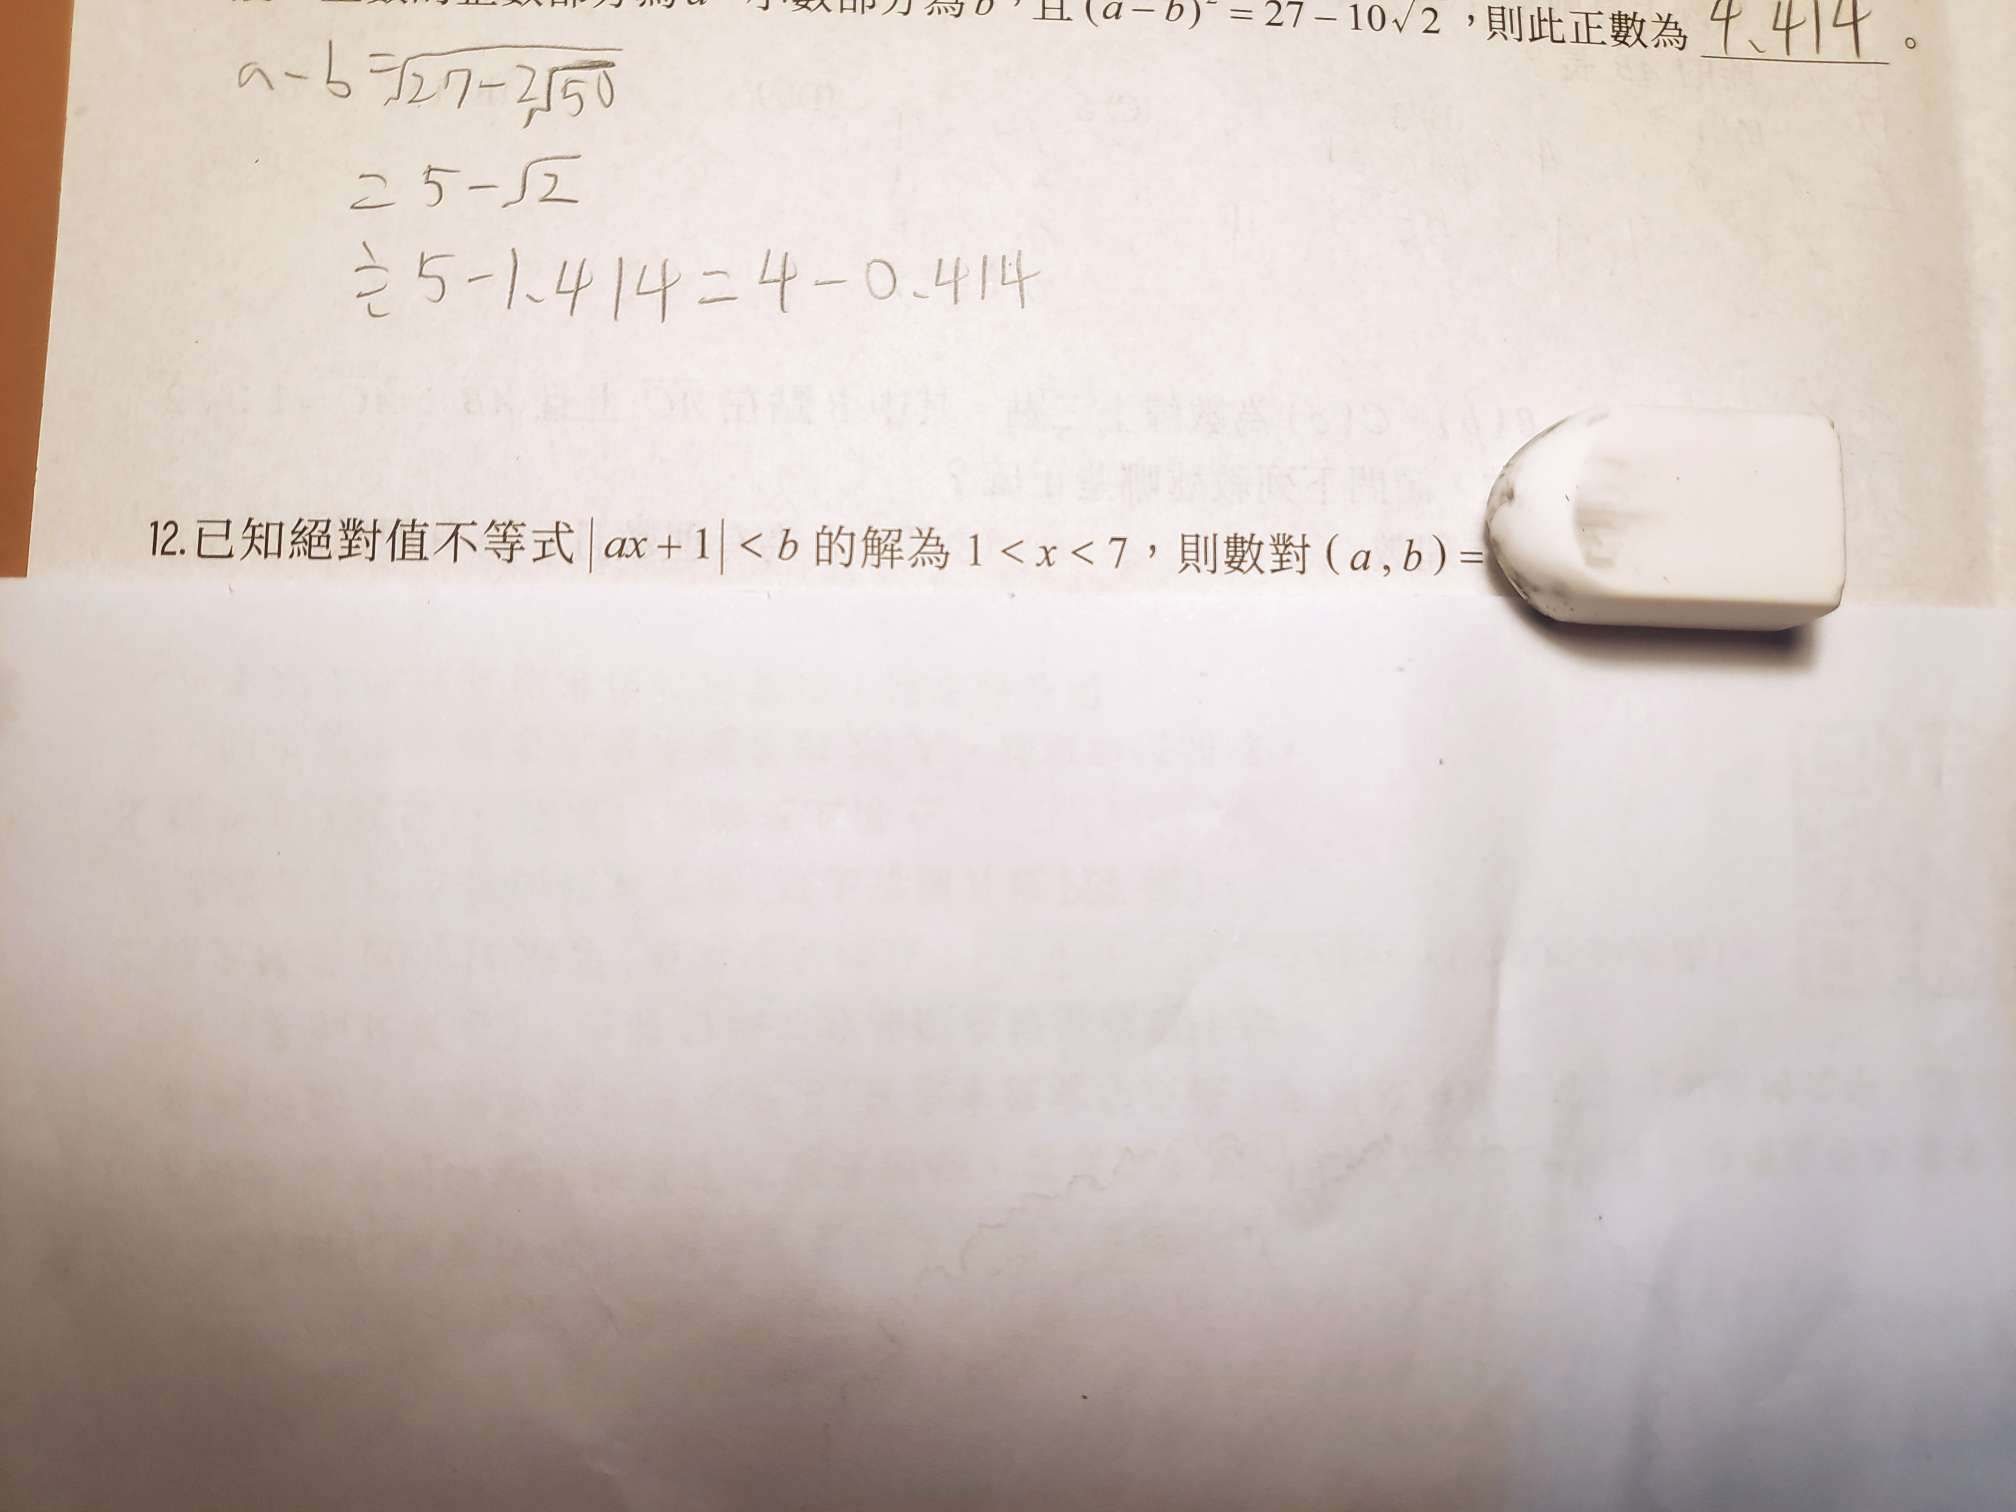 整數部分為a 小數部分為b，且(a−b)²=27−10√2，則此正數為 4.414 。
a-b=√27-2√50
=5-√2
≒5-1.414=4-0.414
12.已知絕對值不等式|ax+1|<b的解為1<x<7，則數對(a,b)=